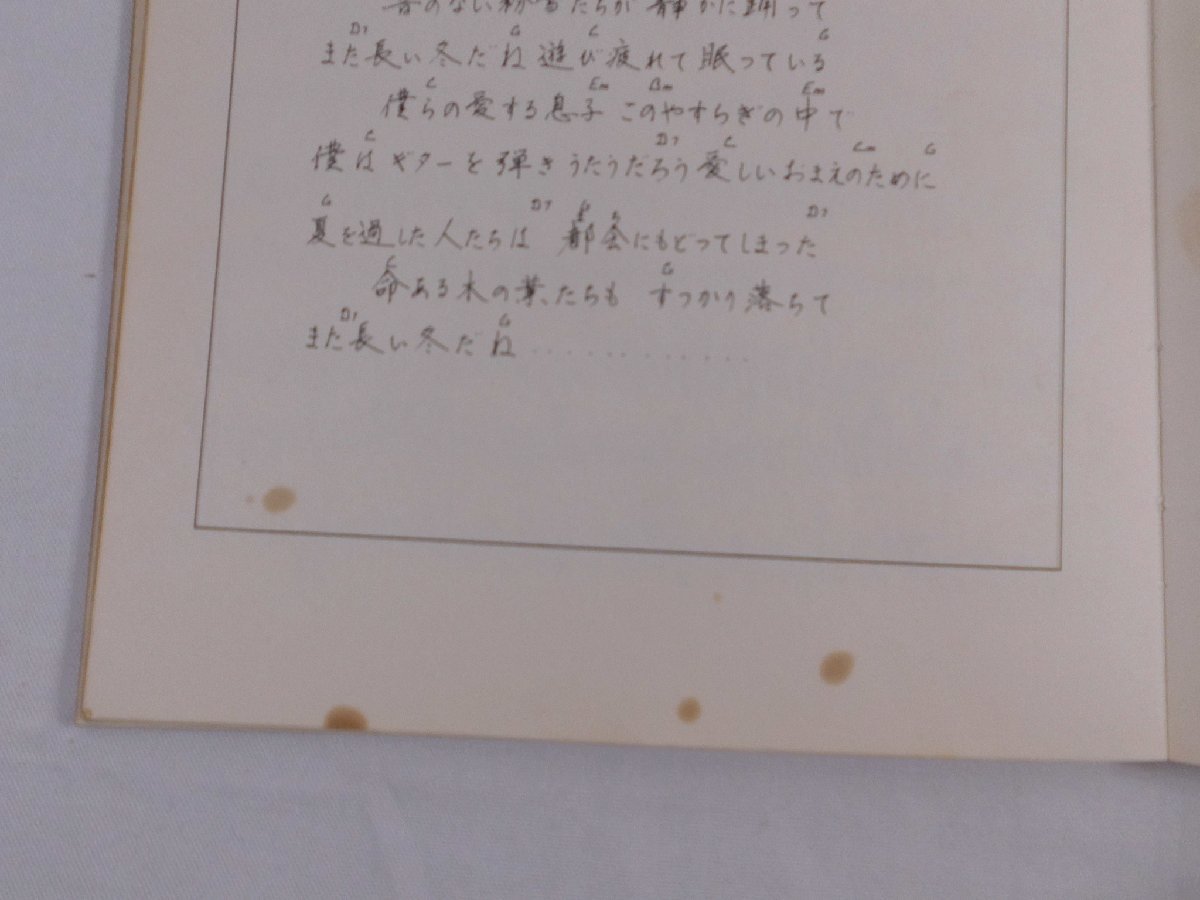 のない
たちが 静かに踊って
D7 G C G
また長い冬だね 遊び疲れて眠っている
C Em Bm Em
僕らの愛する息子 このやすらぎの中で
C D7 C Cm G
僕はギターを弾きうたうだろう 愛しいおまえのために
G D7 G D7
夏を過した人たちは 都会にもどってしまった
C G
命ある木の葉たちも すっかり落ちて
D7 G
また長い冬だね............